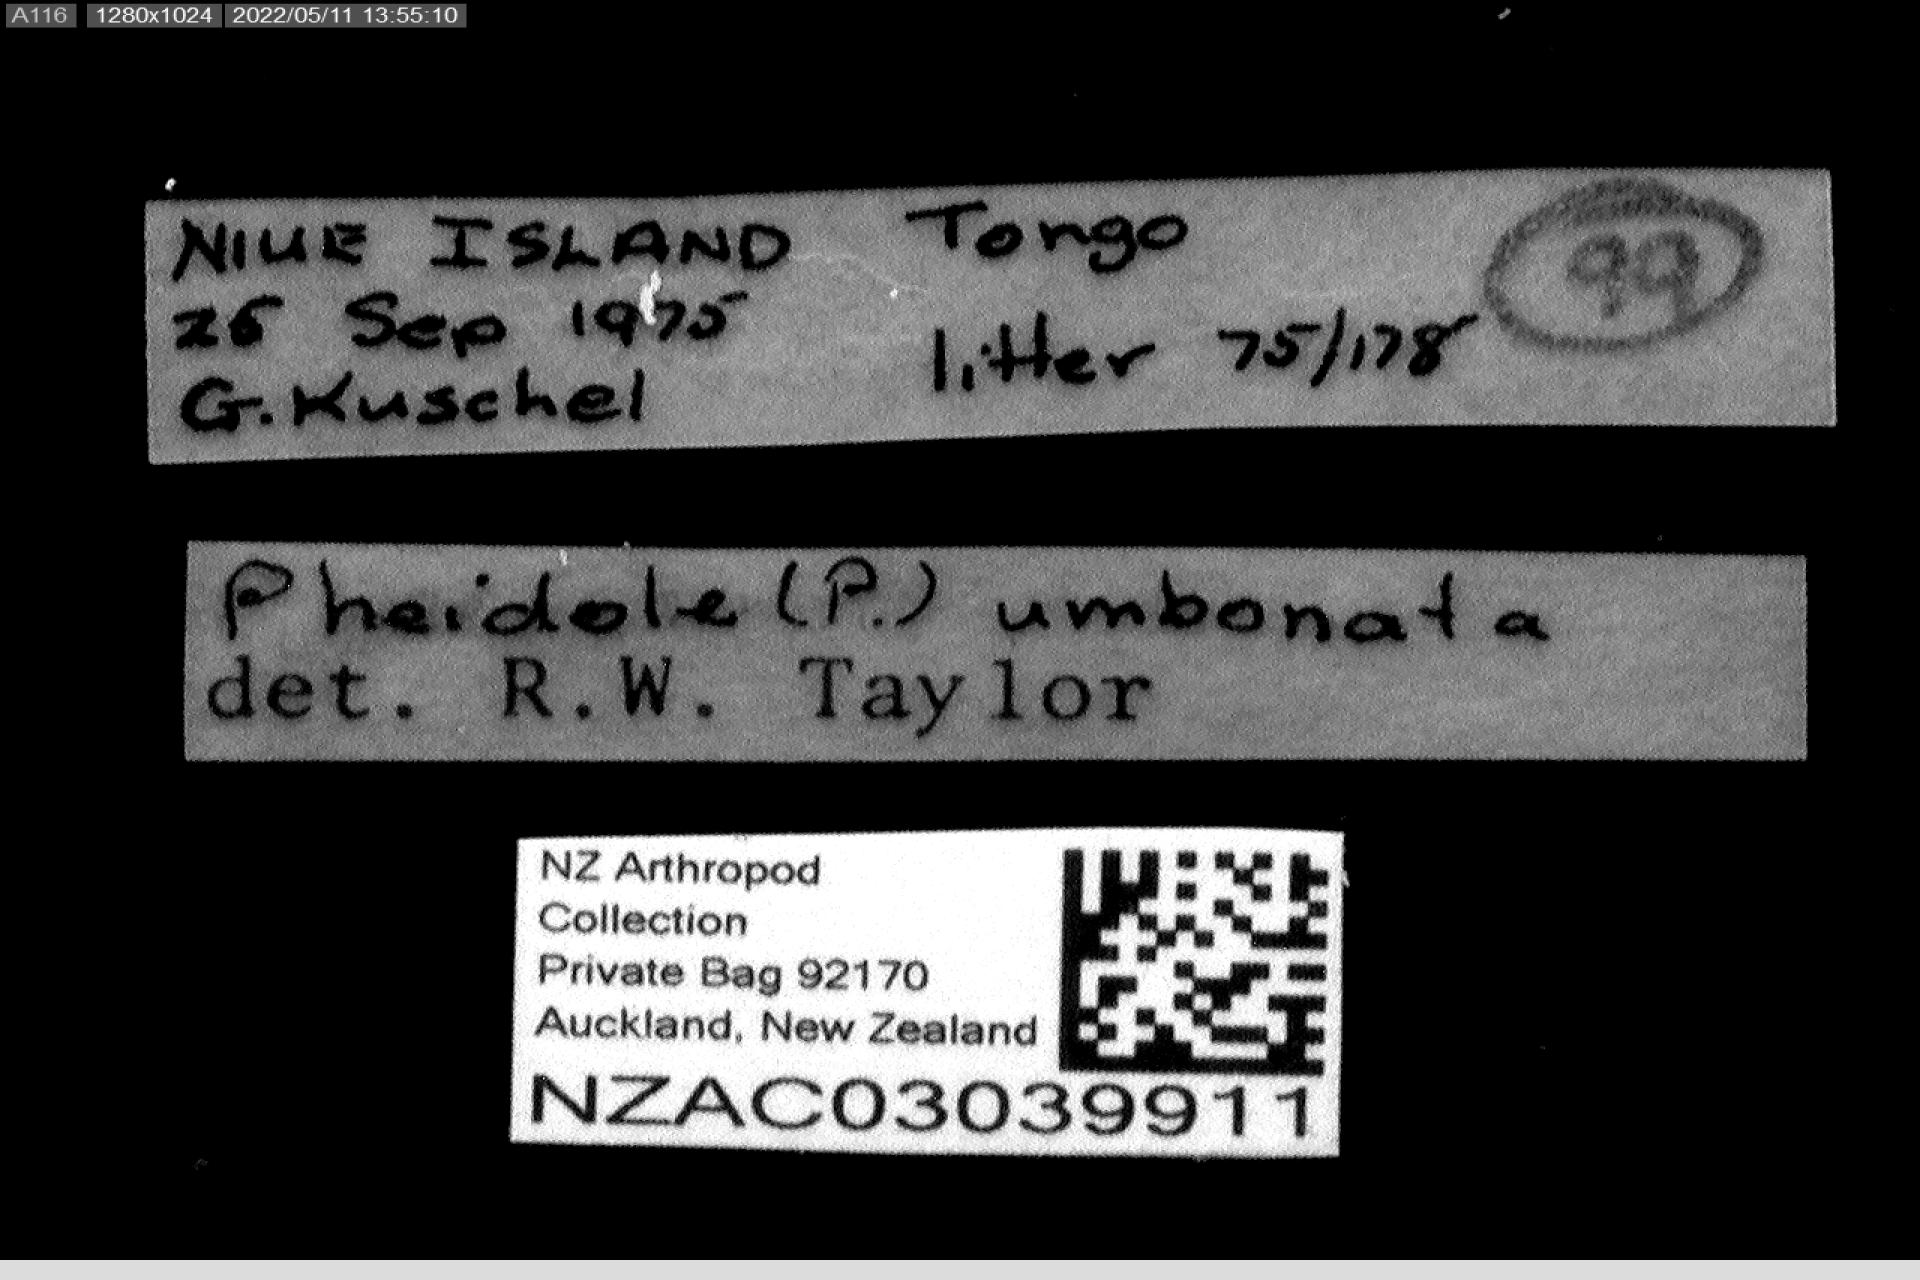 A116 1280x1024 2022/05/11 13:55:10
NIUE ISLAND Tongo 99
26 Sep 1975 litter 75/178
G. Kuschel
Pheidole (P.) umbonata
det. R.W. Taylor
NZ Arthropod
Collection
Private Bag 92170
Auckland, New Zealand
NZAC03039911